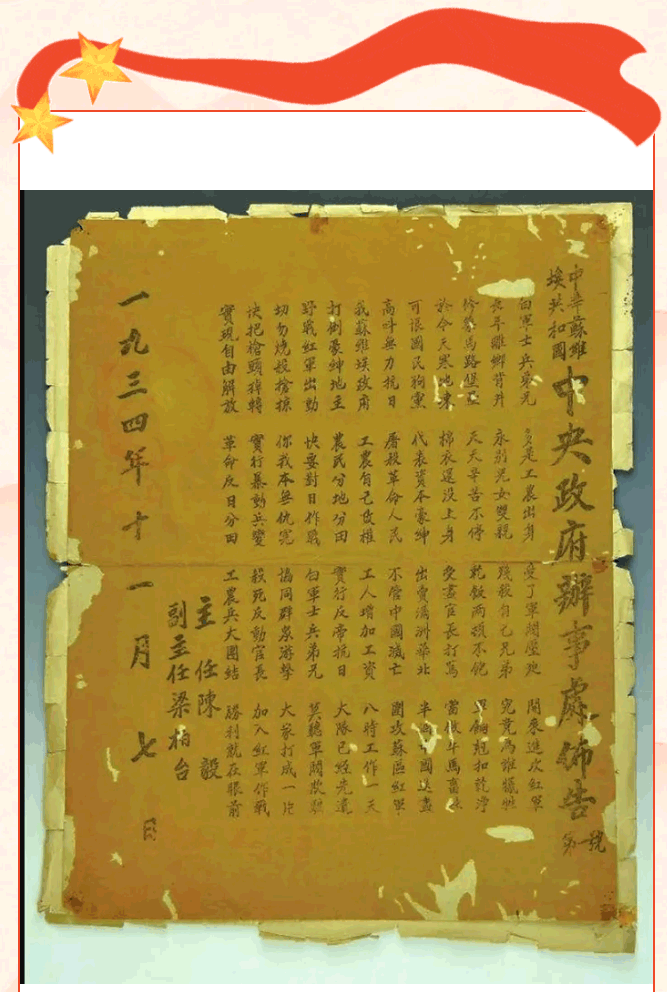 中華蘇維
埃共和國
中央政府辦事處佈告
第一號
白軍士兵弟兄 多是工農出身 受了軍閥壓迫 開來進攻紅軍
長年離鄉背井 永別兒女雙親 殘殺自己兄弟 究竟為誰犧牲
修築馬路堡壘 天天辛苦不停 乾飯兩頓不飽 軍餉剋扣乾淨
於今天寒地凍 棉衣還沒上身 受盡官長打罵 當做牛馬畜牲
可恨國民狗黨 代表資本豪紳 出賣滿洲華北 半個中國送盡
高呼無力抗日 屠殺革命人民 不管中國滅亡 圍攻蘇區紅軍
我蘇維埃政府 工農自己政權 工人增加工資 八時工作一天
打倒豪紳地主 農民分地分田 實行反帝抗日 大隊已經先遣
野戰紅軍出動 快要對日作戰 白軍士兵弟兄 莫聽軍閥欺騙
切勿燒殺搶掠 你我本無仇冤 協同群眾游擊 大家打成一片
快把槍頭掉轉 實行暴動兵變 殺死反動官長 加入紅軍作戰
實現自由解放 革命反日分田 工農兵大團結 勝利就在眼前
主任陳毅
副主任梁柏台
一九三四年十一月七日